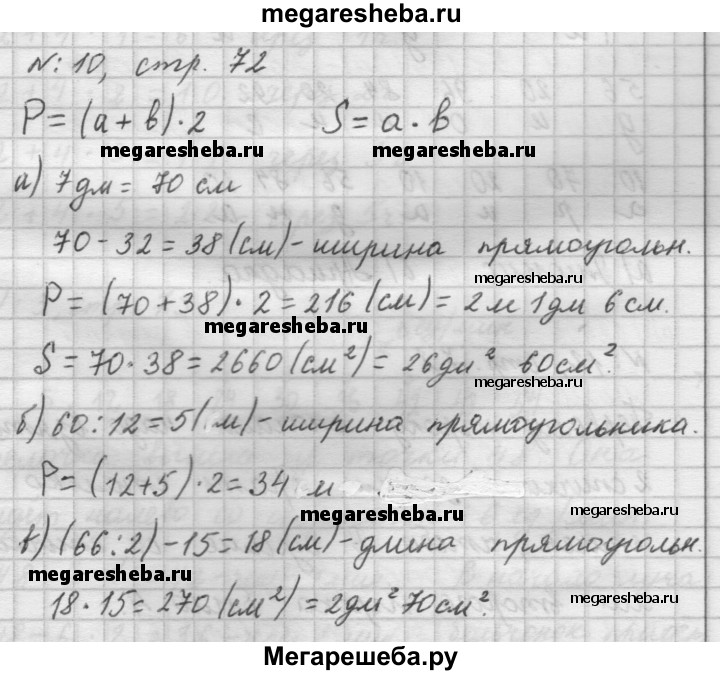 megaresheba.ru
№: 10, стр. 72
P = (a + b) · 2 S = a · b
megaresheba.ru megaresheba.ru
а) 7 дм = 70 см
70 - 32 = 38 (см) - ширина прямоугольн.
megaresheba.ru
P = (70 + 38) · 2 = 216 (см) = 2 м 1 дм 6 см.
megaresheba.ru
S = 70 · 38 = 2660 (см²) = 26 дм² 60 см².
megaresheba.ru
б) 60 : 12 = 5 (м) - ширина прямоугольника.
P = (12 + 5) · 2 = 34 м
megaresheba.ru megaresheba.ru
в) (66 : 2) - 15 = 18 (см) - длина прямоугольн.
megaresheba.ru
18 · 15 = 270 (см²) = 2 дм² 70 см².
megaresheba.ru
Мегарешеба.ру